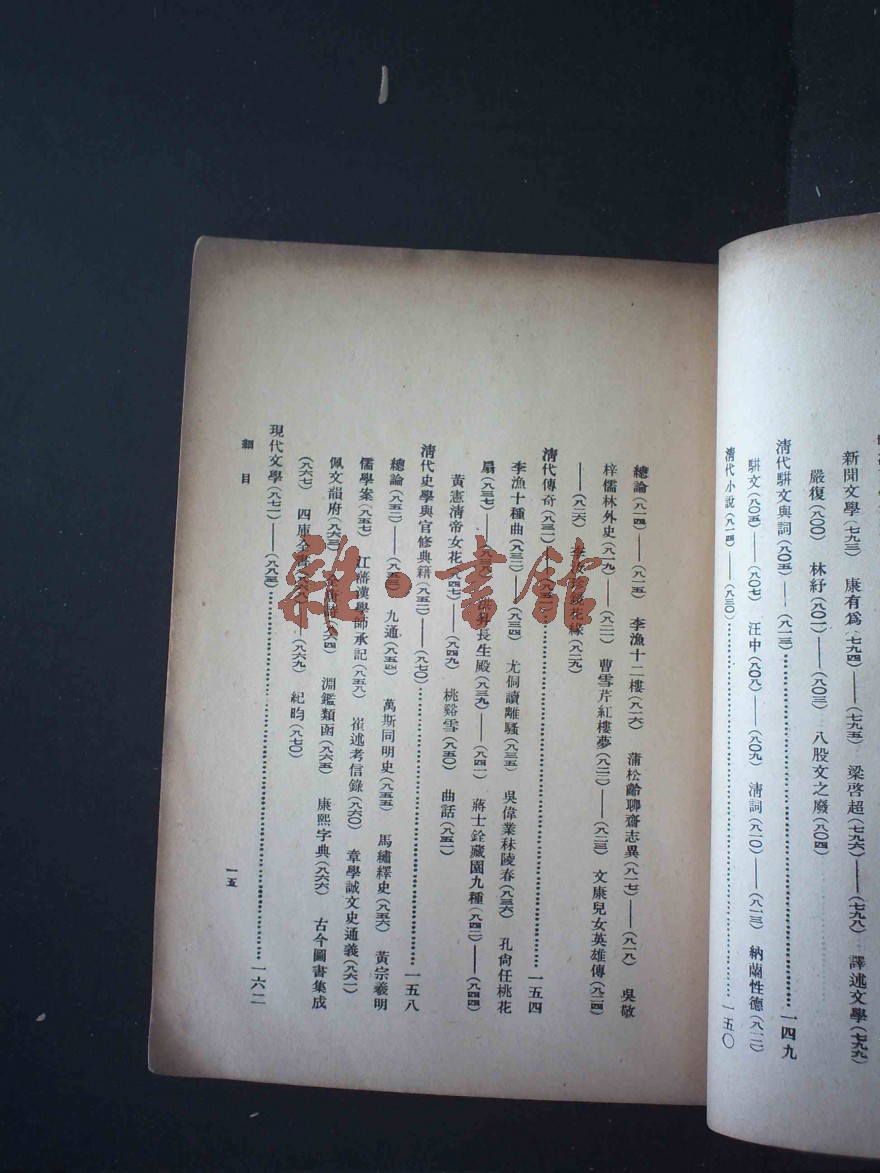 新聞文學(七九三)　康有為(七九四)——(七九五)　梁啓超(七九六)——(七九八)　譯述文學(七九九)
嚴復(八〇〇)　林紓(八〇一)——(八〇三)　八股文之廢(八〇四)
清代駢文與詞(八〇五)——(八一三)…………一四九
駢文(八〇五)——(八〇七)　汪中(八〇八)——(八〇九)　清詞(八一〇)——(八一三)　納蘭性德(八一二)
清代小說(八一四)——(八三〇)…………一五〇
總論(八一四)——(八一五)　李漁十二樓(八一六)　蒲松齡聊齋志異(八一七)——(八一八)　吳敬
梓儒林外史(八一九)——(八二一)　曹雪芹紅樓夢(八二二)——(八二三)　文康兒女英雄傳(八二四)
——(八二六)　李汝珍鏡花緣(八二九)
清代傳奇(八三一)——…………一五四
李漁十種曲(八三二)——(八三四)　尤侗讀離騷(八三五)　吳偉業秣陵春(八三六)　孔尚任桃花
扇(八三七)——(八三八)　洪昇長生殿(八三九)——(八四一)　蔣士銓藏園九種(八四二)——(八四四)
黃憲清帝女花(八四七)——(八四九)　桃谿雪(八五〇)　曲話(八五一)
清代史學與官修典籍(八五二)——(八七〇)…………一五八
總論(八五二)——(八五三)　九通(八五四)　萬斯同明史(八五五)　馬繡繹史(八五六)　黃宗羲明
儒學案(八五七)　江藩漢學師承記(八五八)　崔述考信錄(八六〇)　章學誠文史通義(八六一)
佩文韻府(八六三)　全唐詩(八六四)　淵鑑類函(八六五)　康熙字典(八六六)　古今圖書集成
(八六七)　四庫全書(八六八)——(八六九)　紀昀(八七〇)
現代文學(八七一)——(八九三)…………一六二
細目
一五
雜·書館